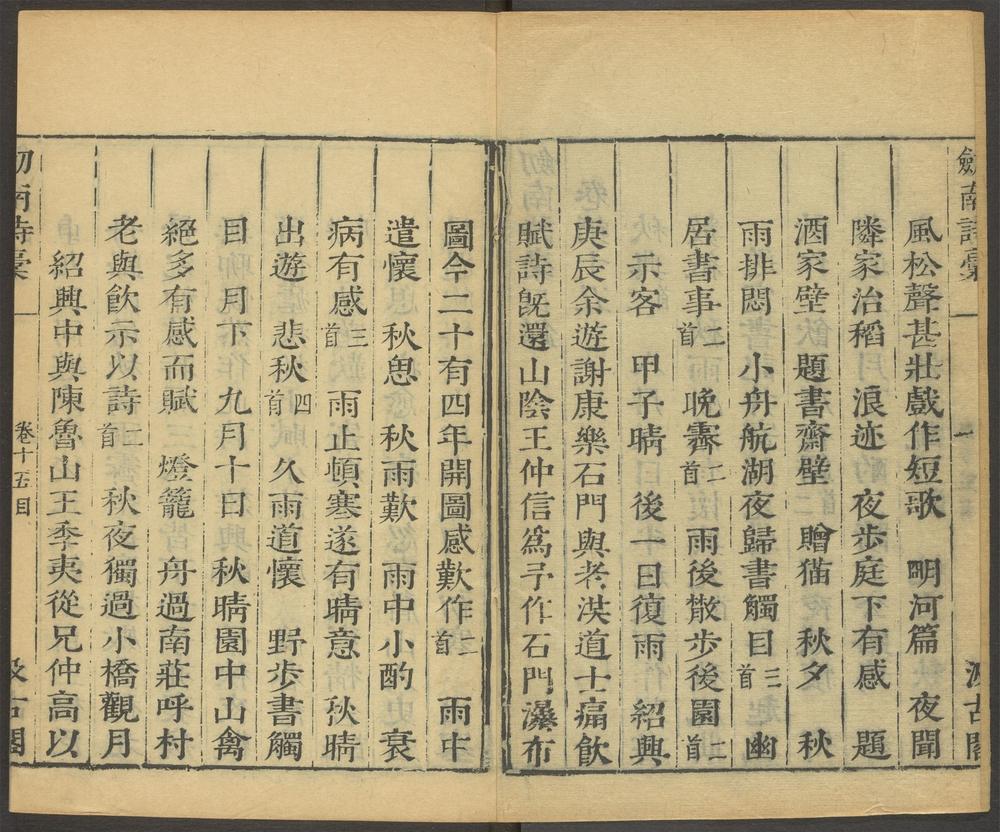 劒南詩稾 一 汲古閣
風松聲甚壯戲作短歌 明河篇 夜聞
隣家治稻 浪迹 夜步庭下有感 題
酒家壁 題書齋壁 贈猫 秋夕 秋
雨排悶 小舟航湖夜歸書觸目三首 幽
居書事二首 晚霽二首 雨後散步後園二首
示客 甲子晴 後一日復雨 紹興
庚辰余遊謝康樂石門與老洪道士痛飲
賦詩旣還山陰王仲信爲予作石門瀑布
圖今二十有四年開圖感歎作二首 雨中
遣懷 秋思 秋雨歎 雨中小酌 衰
病有感三首 雨止頓寒遂有晴意 秋晴
出遊 悲秋四首 久雨道懷 野步書觸
目 月下 九月十日 秋晴園中山禽
絕多有感而賦 燈籠 舟過南莊呼村
老與飲示以詩二首 秋夜獨過小橋觀月
紹興中與陳魯山王季夷從兄仲高以
劒南詩稾 一 卷十五目 汲古閣